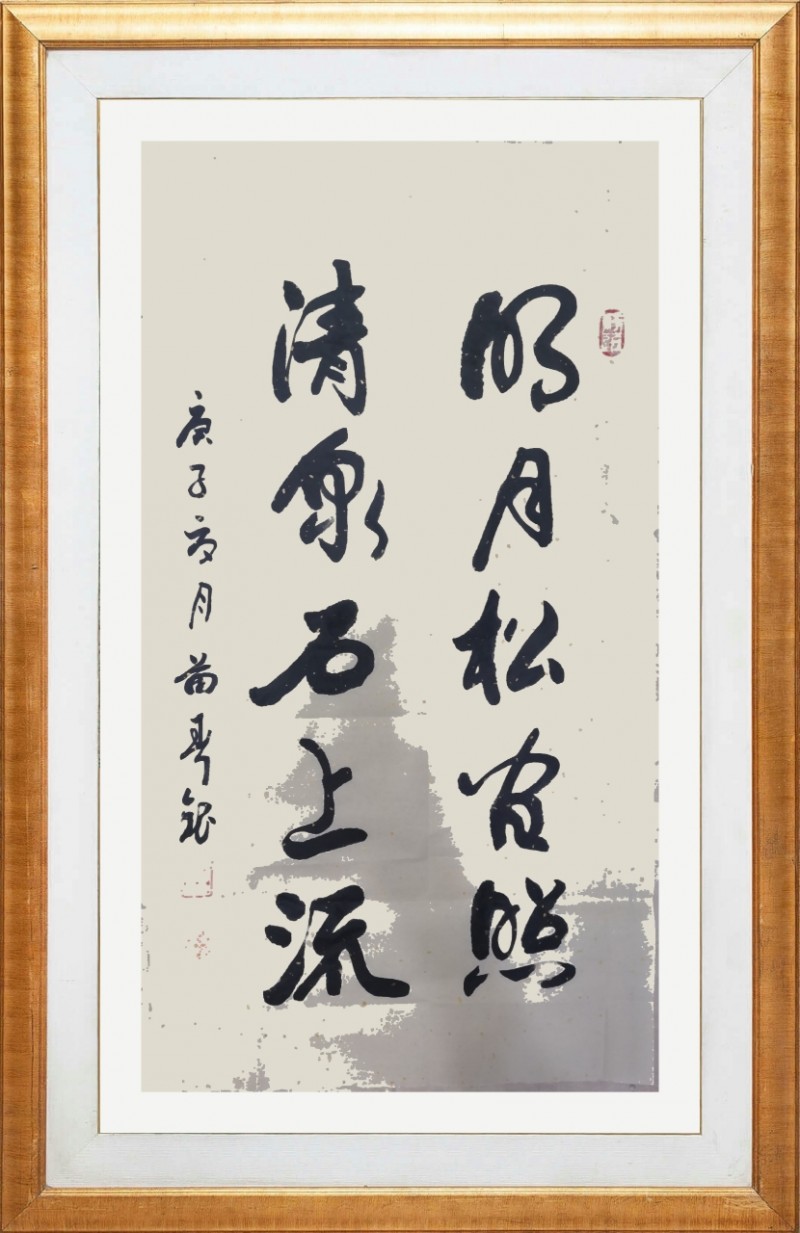 明月松间照
清泉石上流
庚子夏月苗